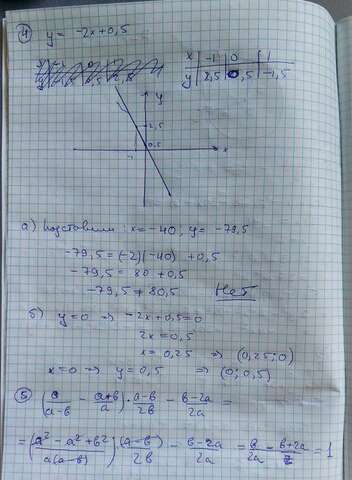 ④ y = -2x+0,5
x | -1 | 0 | 1
y | 2,5 | 0,5 | -1,5
y
2,5
0,5
-1
x
а) Подставим: x = -40; y = -79,5
-79,5 = (-2)(-40) + 0,5
-79,5 = 80 + 0,5
-79,5 ≠ 80,5 Нет
б) y=0 ⇒ -2x+0,5=0
2x = 0,5
x = 0,25 ⇒ (0,25; 0)
x=0 ⇒ y=0,5 ⇒ (0; 0,5)
⑤ (a/(a-b) - (a+b)/a) · (a-b)/2b - (b-2a)/2a =
= ((a² - a² + b²)/(a(a-b))) · (a-b)/2b - (b-2a)/2a = b/2a - (b+2a)/2 = 1